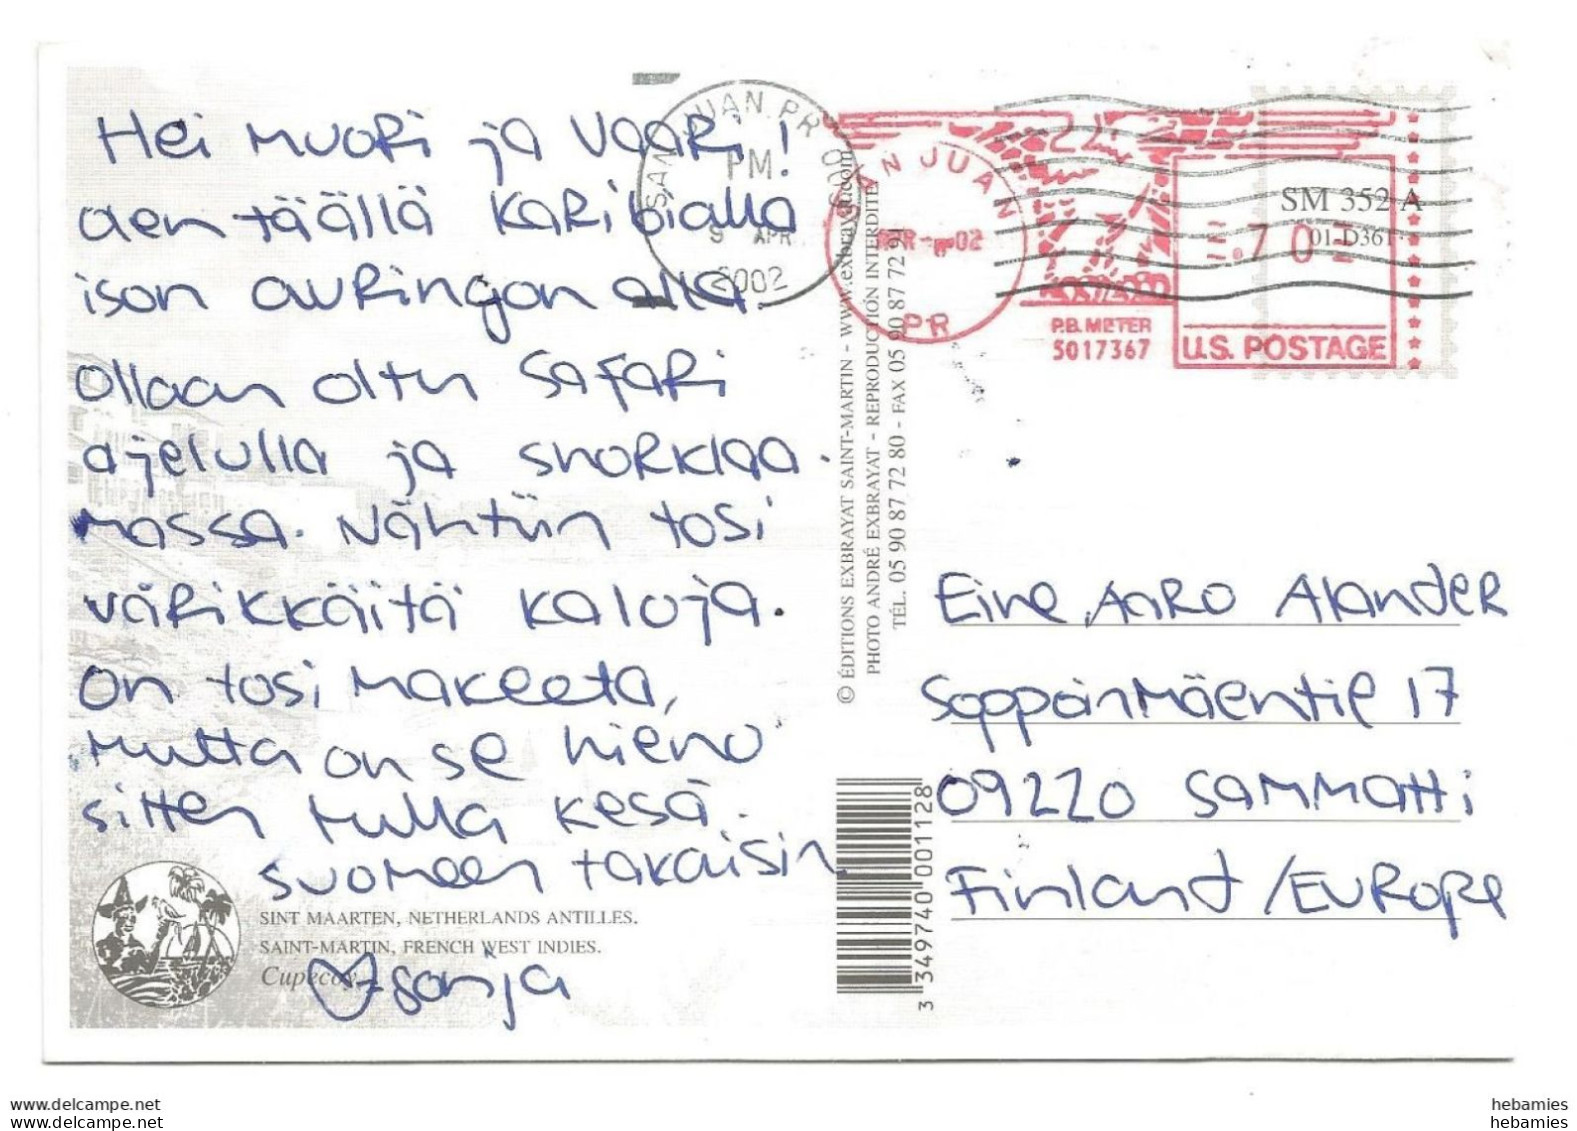 Hei Muori ja Vaari!
Oen täällä Karibialla
ison auringon alla.
Ollaan oltu Safari
ajelulla ja snorklaa-
massa. Nähtiin tosi
värikkäitä kaloja.
On tosi makeeta,
mutta on se hieno
sitten tulla kesä.
Suomeen takaisin.
Sonja
SINT MAARTEN, NETHERLANDS ANTILLES.
SAINT-MARTIN, FRENCH WEST INDIES.
Cupecoy
SAN JUAN PR 009
PM
9 APR
2002
© ÉDITIONS EXBRAYAT SAINT-MARTIN - www.exbrayat.com
PHOTO ANDRÉ EXBRAYAT - REPRODUCTION INTERDITE
TÉL. 05 90 87 72 80 - FAX 05 90 87 72 91
SAN JUAN
PR
P.B. METER
5017367
.702
U.S. POSTAGE
SM 352 A
01-D361
Eine, Aaro Alander
Soppoinmäentie 17
09220 Sammatti
Finland / Europe
3 349740 001128
hebamies
hebamies
www.delcampe.net
www.delcampe.net